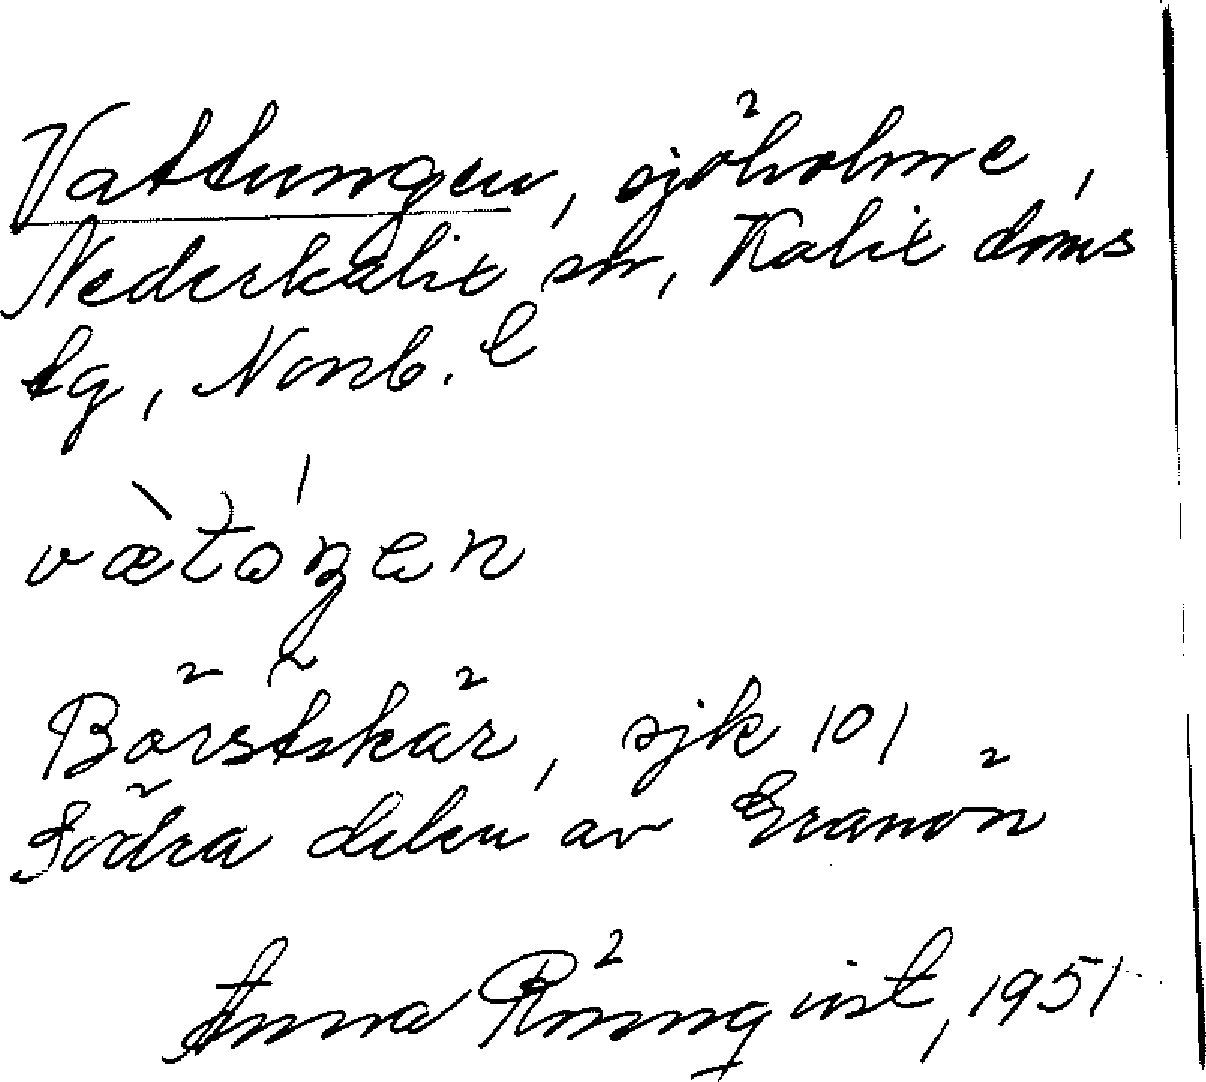 Vattungen, sjöholme,
Nederkalix sn, Kalix doms
tg, Norrb. l
vætoŋen
Börstskär, sjk 101
Södra delen av Granön
Anna Rönnqvist, 1951